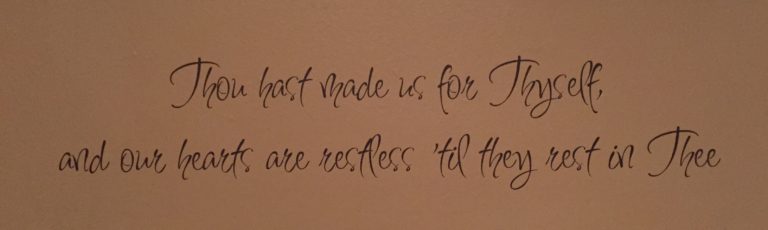 Thou hast made us for Thyself,
and our hearts are restless 'til they rest in Thee